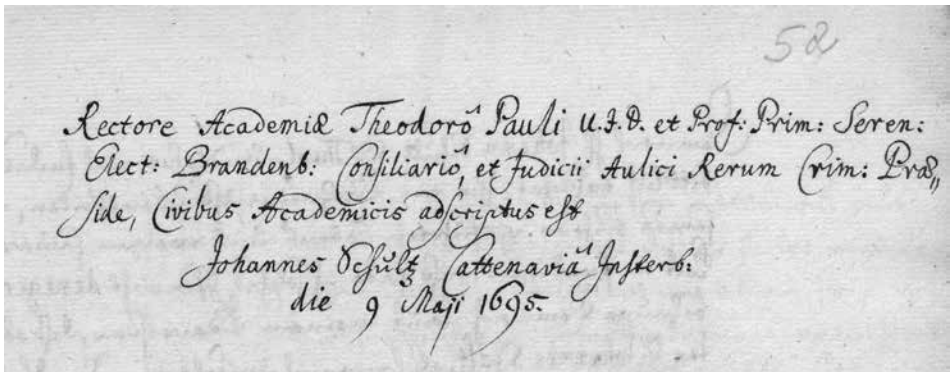 52
Rectore Academiæ Theodorô Pauli U.J.D. et Prof: Prim: Seren:
Elect: Brandenb: Consiliariô, et Judicii Aulici Rerum Crim: Præ„
side, Civibus Academicis adscriptus est
Johannes Schultz Cattenaviâ Insterb:
die 9 Maji 1695.